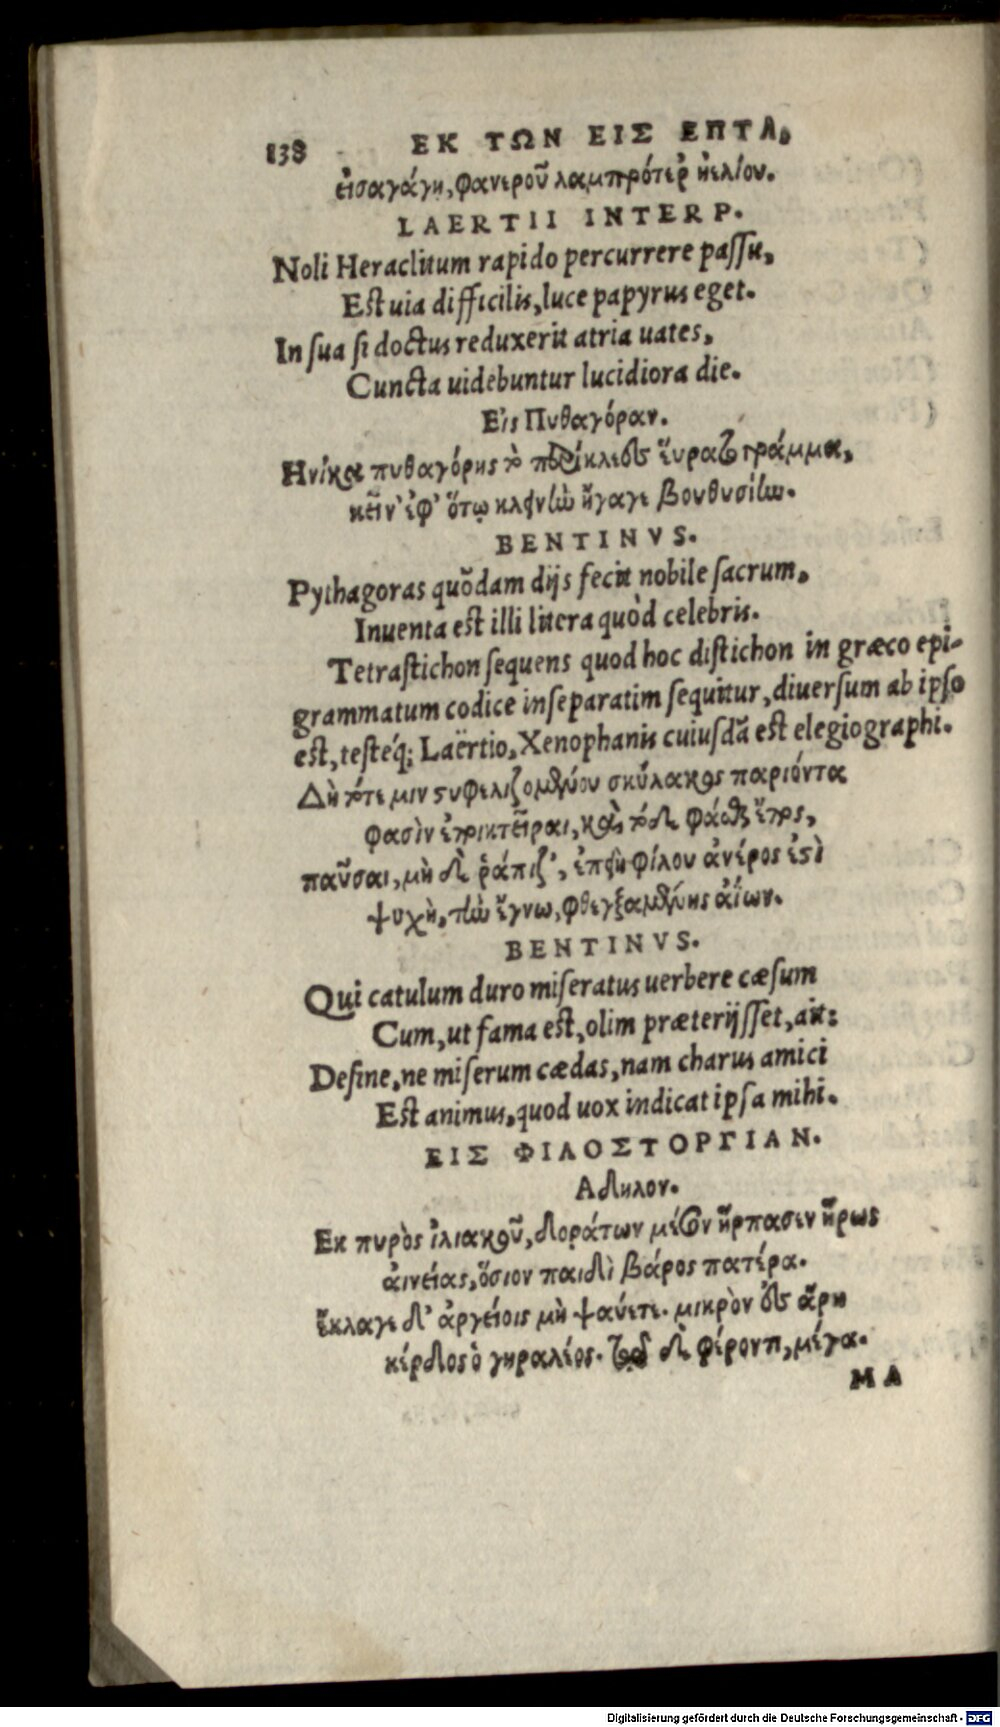 138 ΕΚ ΤΩΝ ΕΙΣ ΕΠΤΑ,
εἰσαγάγῃ, φανεροῦ λαμπρότερ' ἠελίου.
LAERTII INTERP.
Noli Heraclitum rapido percurrere passu,
Est uia difficilis, luce papyrus eget.
In sua si doctus reduxerit atria uates,
Cuncta uidebuntur lucidiora die.
Εἰς Πυθαγόραν.
Ηνίκα πυθαγόρης τὸ περικλεὲς εὕρατο γράμμα,
κεῖν' ἐφ' ὅτῳ κλεινὴν ἤγαγε βουθυσίην.
BENTINVS.
Pythagoras quõdam dijs fecit nobile sacrum,
Inuenta est illi litera quòd celebris.
Tetrastichon sequens quod hoc distichon in græco epi-
grammatum codice inseparatim sequitur, diuersum ab ipso
est, testéq; Laërtio, Xenophanis cuiusdã est elegiographi.
Δή ποτέ μιν στυφελιζομένου σκύλακος παριόντα
φασὶν ἐποικτεῖραι, καὶ τόδε φάσθαι ἔπος,
παῦσαι, μὴ δὲ ῥάπιζ', ἐπειὴ φίλου ἀνέρος ἐστὶ
ψυχὴ, τὴν ἔγνω, φθεγξαμένης ἀΐων.
BENTINVS.
Qui catulum duro miseratus uerbere cæsum
Cum, ut fama est, olim præterijsset, ait:
Desine, ne miserum cædas, nam charus amici
Est animus, quod uox indicat ipsa mihi.
ΕΙΣ ΦΙΛΟΣΤΟΡΓΙΑΝ.
Αδηλον.
Εκ πυρὸς ἰλιακοῦ, δοράτων μέσον ἥρπασεν ἥρως
αἰνείας, ὅσιον παιδὶ βάρος πατέρα.
ἔκλαγε δ' ἀργείοις μὴ ψαύετε. μικρὸν ἐς ἄρη
κέρδος ὁ γηραλέος. τῷ δὲ φέροντι, μέγα.
ΜΑ
Digitalisierung gefördert durch die Deutsche Forschungsgemeinschaft - DFG